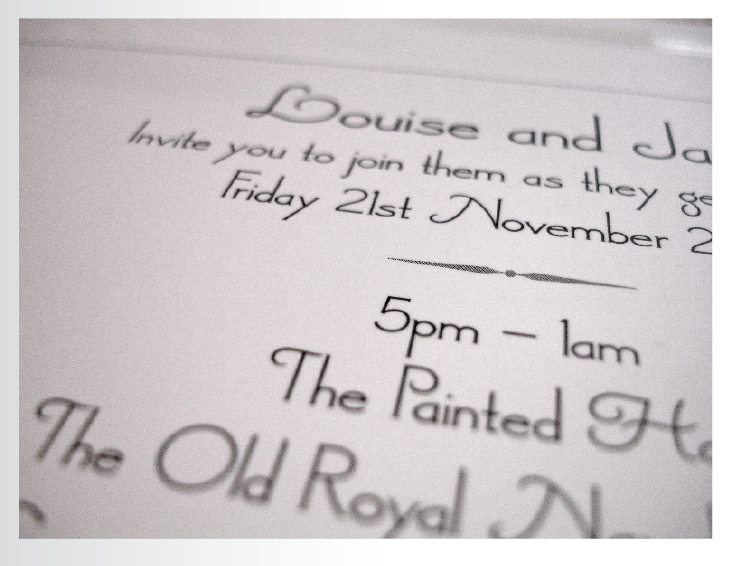 Louise and Ja
Invite you to join them as they ge
Friday 21st November 2
5pm – 1am
The Painted Ha
The Old Royal Na